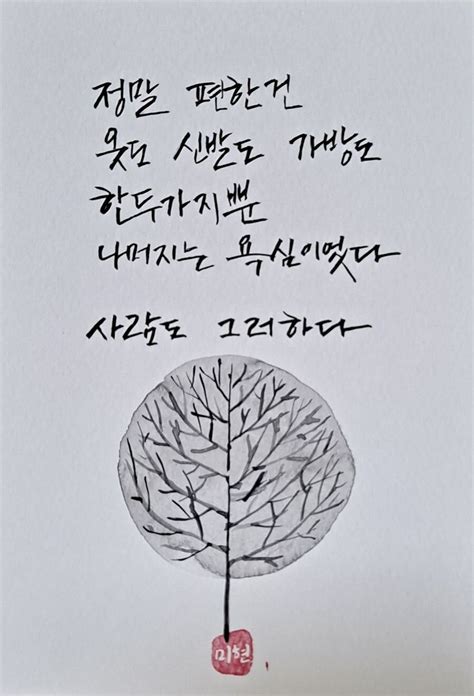 정말 편한건
옷도 신발도 가방도
한두가지뿐
나머지는 욕심이었다
사람도 그러하다
미현